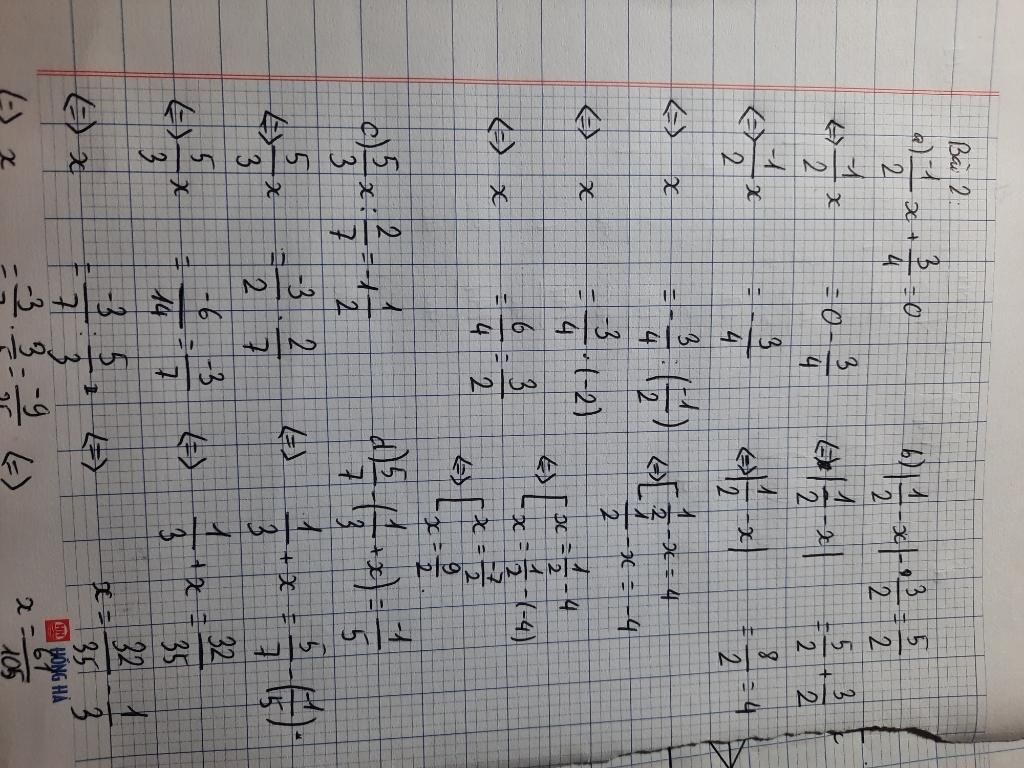 Bài 2:
a) -1/2 x + 3/4 = 0
<=> -1/2 x = 0 - 3/4
<=> -1/2 x = -3/4
<=> x = -3/4 : (-1/2)
<=> x = -3/4 . (-2)
<=> x = 6/4 = 3/2
c) 5/3 x : 2/7 = -1 1/2
<=> 5/3 x = -3/2 . 2/7
<=> 5/3 x = -6/14 = -3/7
<=> x = -3/7 : 5/3
<=> x = -3/7 . 3/5 = -9/35
b) |1/2 - x| - 3/2 = 5/2
<=> |1/2 - x| = 5/2 + 3/2
<=> |1/2 - x| = 8/2 = 4
<=> [ 1/2 - x = 4
1/2 - x = -4
<=> [ x = 1/2 - 4
x = 1/2 - (-4)
<=> [ x = -7/2
x = 9/2
d) 5/7 - (1/3 + x) = -1/5
<=> 1/3 + x = 5/7 - (-1/5)
<=> 1/3 + x = 32/35
<=> x = 32/35 - 1/3
<=> x = 61/105
HỒNG HÀ